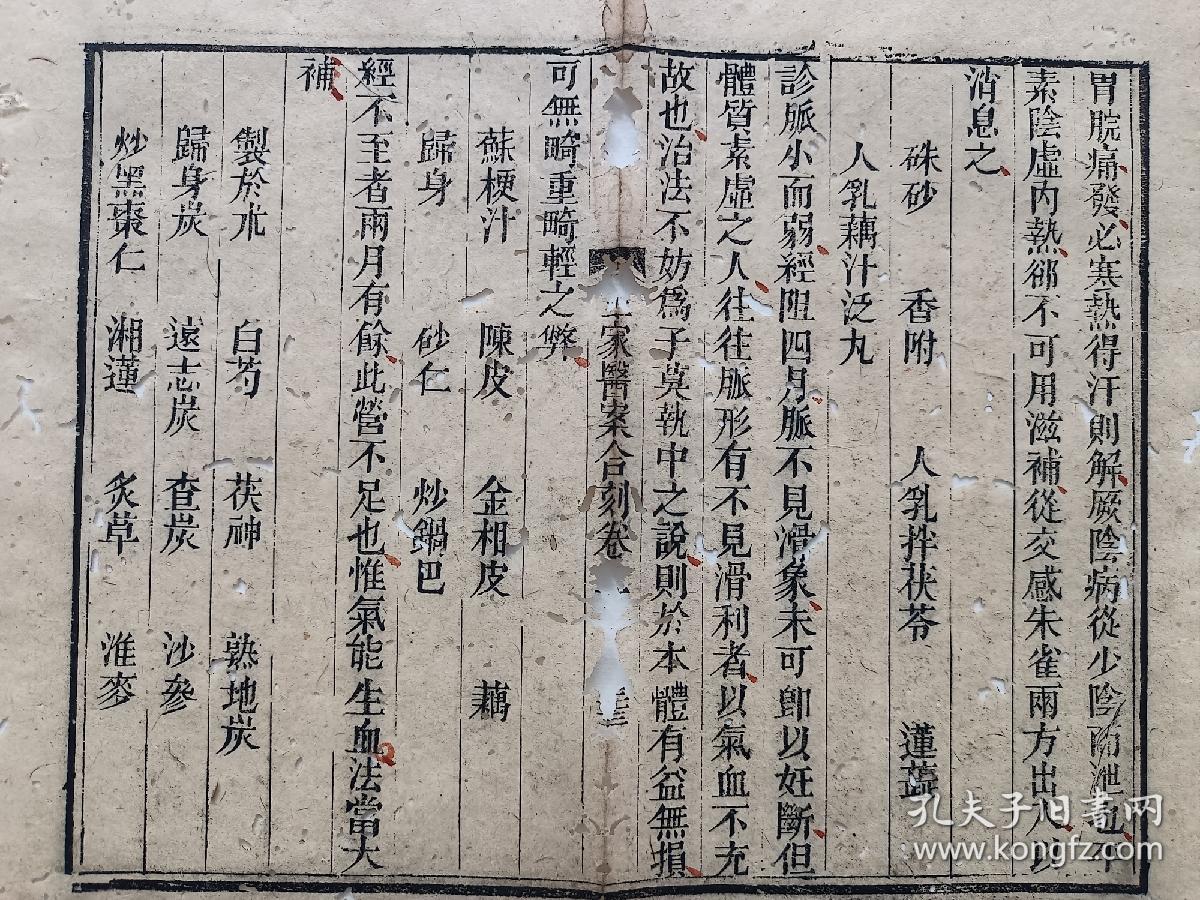 胃脘痛發必寒熱得汗則解厥陰病從少陰陷泄也平
素陰虛內熱卻不可用滋補從交感朱雀兩方出入以
消息之
硃砂 香附 人乳拌茯苓 蓮蕊
人乳藕汁泛丸
診脈小而弱經阻四月脈不見滑象未可卽以妊斷但
體質素虛之人往往脈形有不見滑利者以氣血不充
故也治法不妨爲子莫執中之說則於本體有益無損
可無畸重畸輕之弊
蘇梗汁 陳皮 金相皮 藕
歸身 砂仁 炒鍋巴
經不至者兩月有餘此營不足也惟氣能生血法當大
補
製於朮 白芍 茯神 熟地炭
歸身炭 遠志炭 查炭 沙參
炒黑棗仁 湘蓮 炙草 淮麥
家醫案合刻卷
孔夫子旧書网
www.kongfz.com